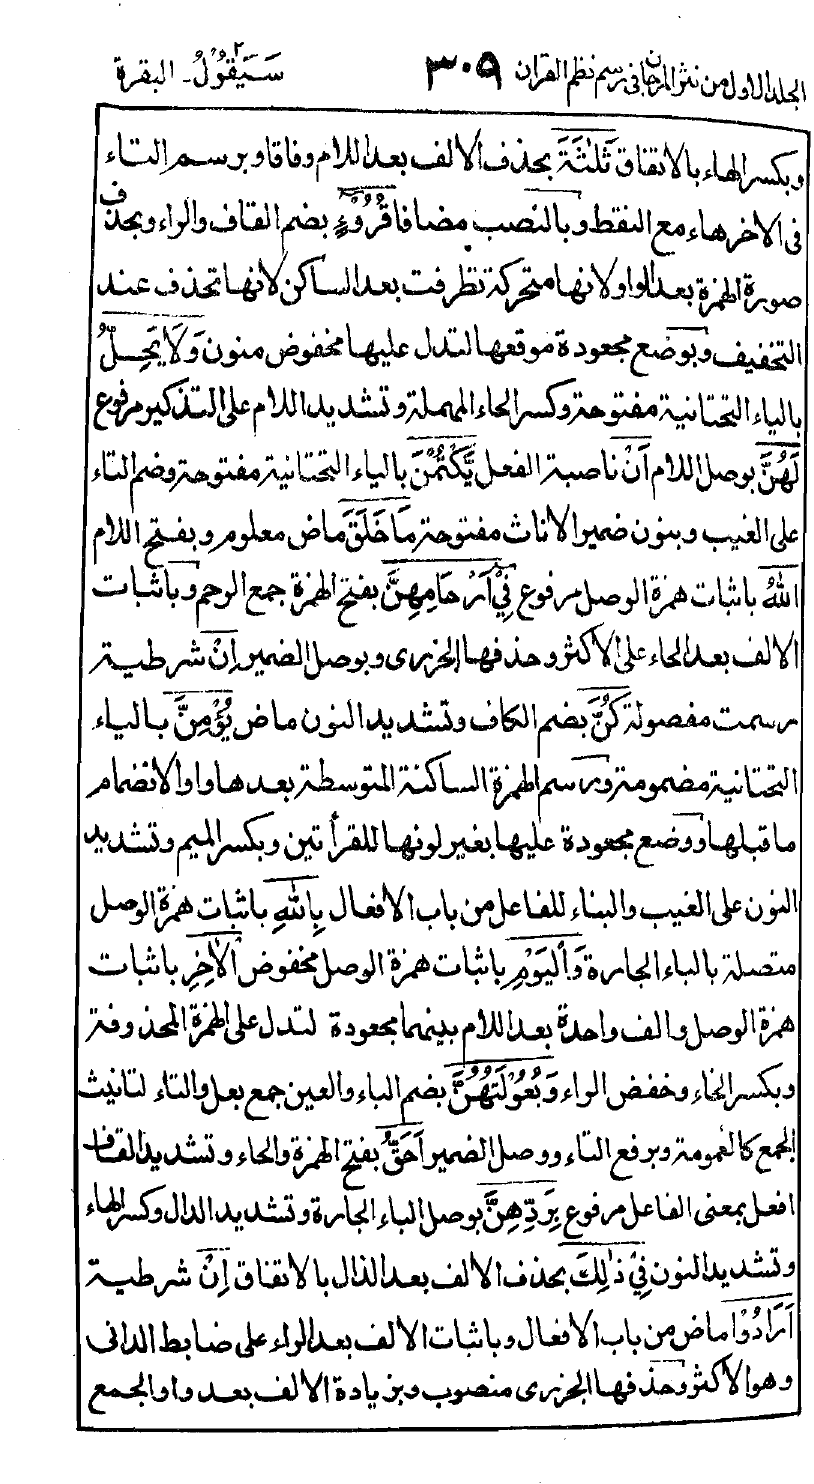 الجلد الاول من نثر المرجان فى رسم نظم القران ٣٠٩ سَيَقُوْلُ ٢ - البقرة
وبكسر الهاء بالاتفاق ثَلٰثَةَ بحذف الالف بعد اللام وفاقا وبرسم التاء
فى الاخر هاء مع النقط وبالنصب مضافا قُرُوْٓءٍ بضم القاف والراء وبحذف
صورة الهمزة بعد الواو لانها متحركة تطرفت بعد الساكن لانها تحذف عند
التخفيف وبوضع مجعودة موقعها لتدل عليها مخفوض منون وَلَا يَحِلُّ
بالياء التحتانية مفتوحة وكسر الحاء المهملة وتشديد اللام على التذكير مرفوع
لَهُنَّ بوصل اللام اَنْ ناصبة الفعل يَّكْتُمْنَ بالياء التحتانية مفتوحة وضم التاء
على الغيب وبنون ضمير الاناث مفتوحة مَا خَلَقَ ماض معلوم وبفتح اللام
اللّٰهُ باثبات همزة الوصل مرفوع فِيْٓ اَرْحَامِهِنَّ بفتح الهمزة جمع الرحم وباثبات
الالف بعد الحاء على الاكثر وحذفها الجزرى وبوصل الضمير اِنْ شرطية
رسمت مفصولة كُنَّ بضم الكاف وتشديد النون ماض يُؤْمِنَّ بالياء
التحتانية مضمومة وبرسم الهمزة الساكنة المتوسطة بعدها واوا لانضمام
ما قبلها ووضع مجعودة عليها بغير لونها للقرأتين وبكسر الميم وتشديد
النون على الغيب والبناء للفاعل من باب الافعال بِاللّٰهِ باثبات همزة الوصل
متصلة بالباء الجارة وَالْيَوْمِ باثبات همزة الوصل مخفوض الْاٰخِرِ باثبات
همزة الوصل والف واحدة بعد اللام بينهما مجعودة لتدل على الهمزة المحذوفة
وبكسر الخاء وخفض الراء وَبُعُوْلَتُهُنَّ بضم الباء والعين جمع بعل والتاء لتانيث
الجمع كالعمومة وبرفع التاء ووصل الضمير اَحَقُّ بفتح الهمزة والحاء وتشديد القاف
افعل بمعنى الفاعل مرفوع بِرَدِّهِنَّ بوصل الباء الجارة وتشديد الدال وكسر الهاء
وتشديد النون فِيْ ذٰلِكَ بحذف الالف بعد الذال بالاتفاق اِنْ شرطية
اَرَادُوْٓا ماض من باب الافعال وباثبات الالف بعد الراء على ضابط الدانى
وهو الاكثر وحذفها الجزرى منصوب وبزيادة الالف بعد واو الجمع